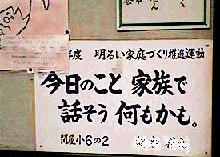 年度 明るい家庭づくり推進運動
今日のこと 家族で
話そう 何もかも。
関屋小6の2